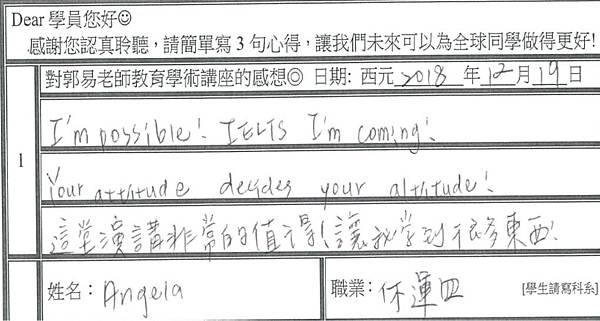 Dear 學員您好☺
感謝您認真聆聽，請簡單寫 3 句心得，讓我們未來可以為全球同學做得更好!
對郭易老師教育學術講座的感想◎ 日期: 西元 2018 年 12 月 19 日
1
I'm possible! IELTS I'm coming!
Your attitude decides your altitude!
這堂演講非常的值得!讓我学到很多東西!
姓名： Angela
職業： 休運四 [學生請寫科系]